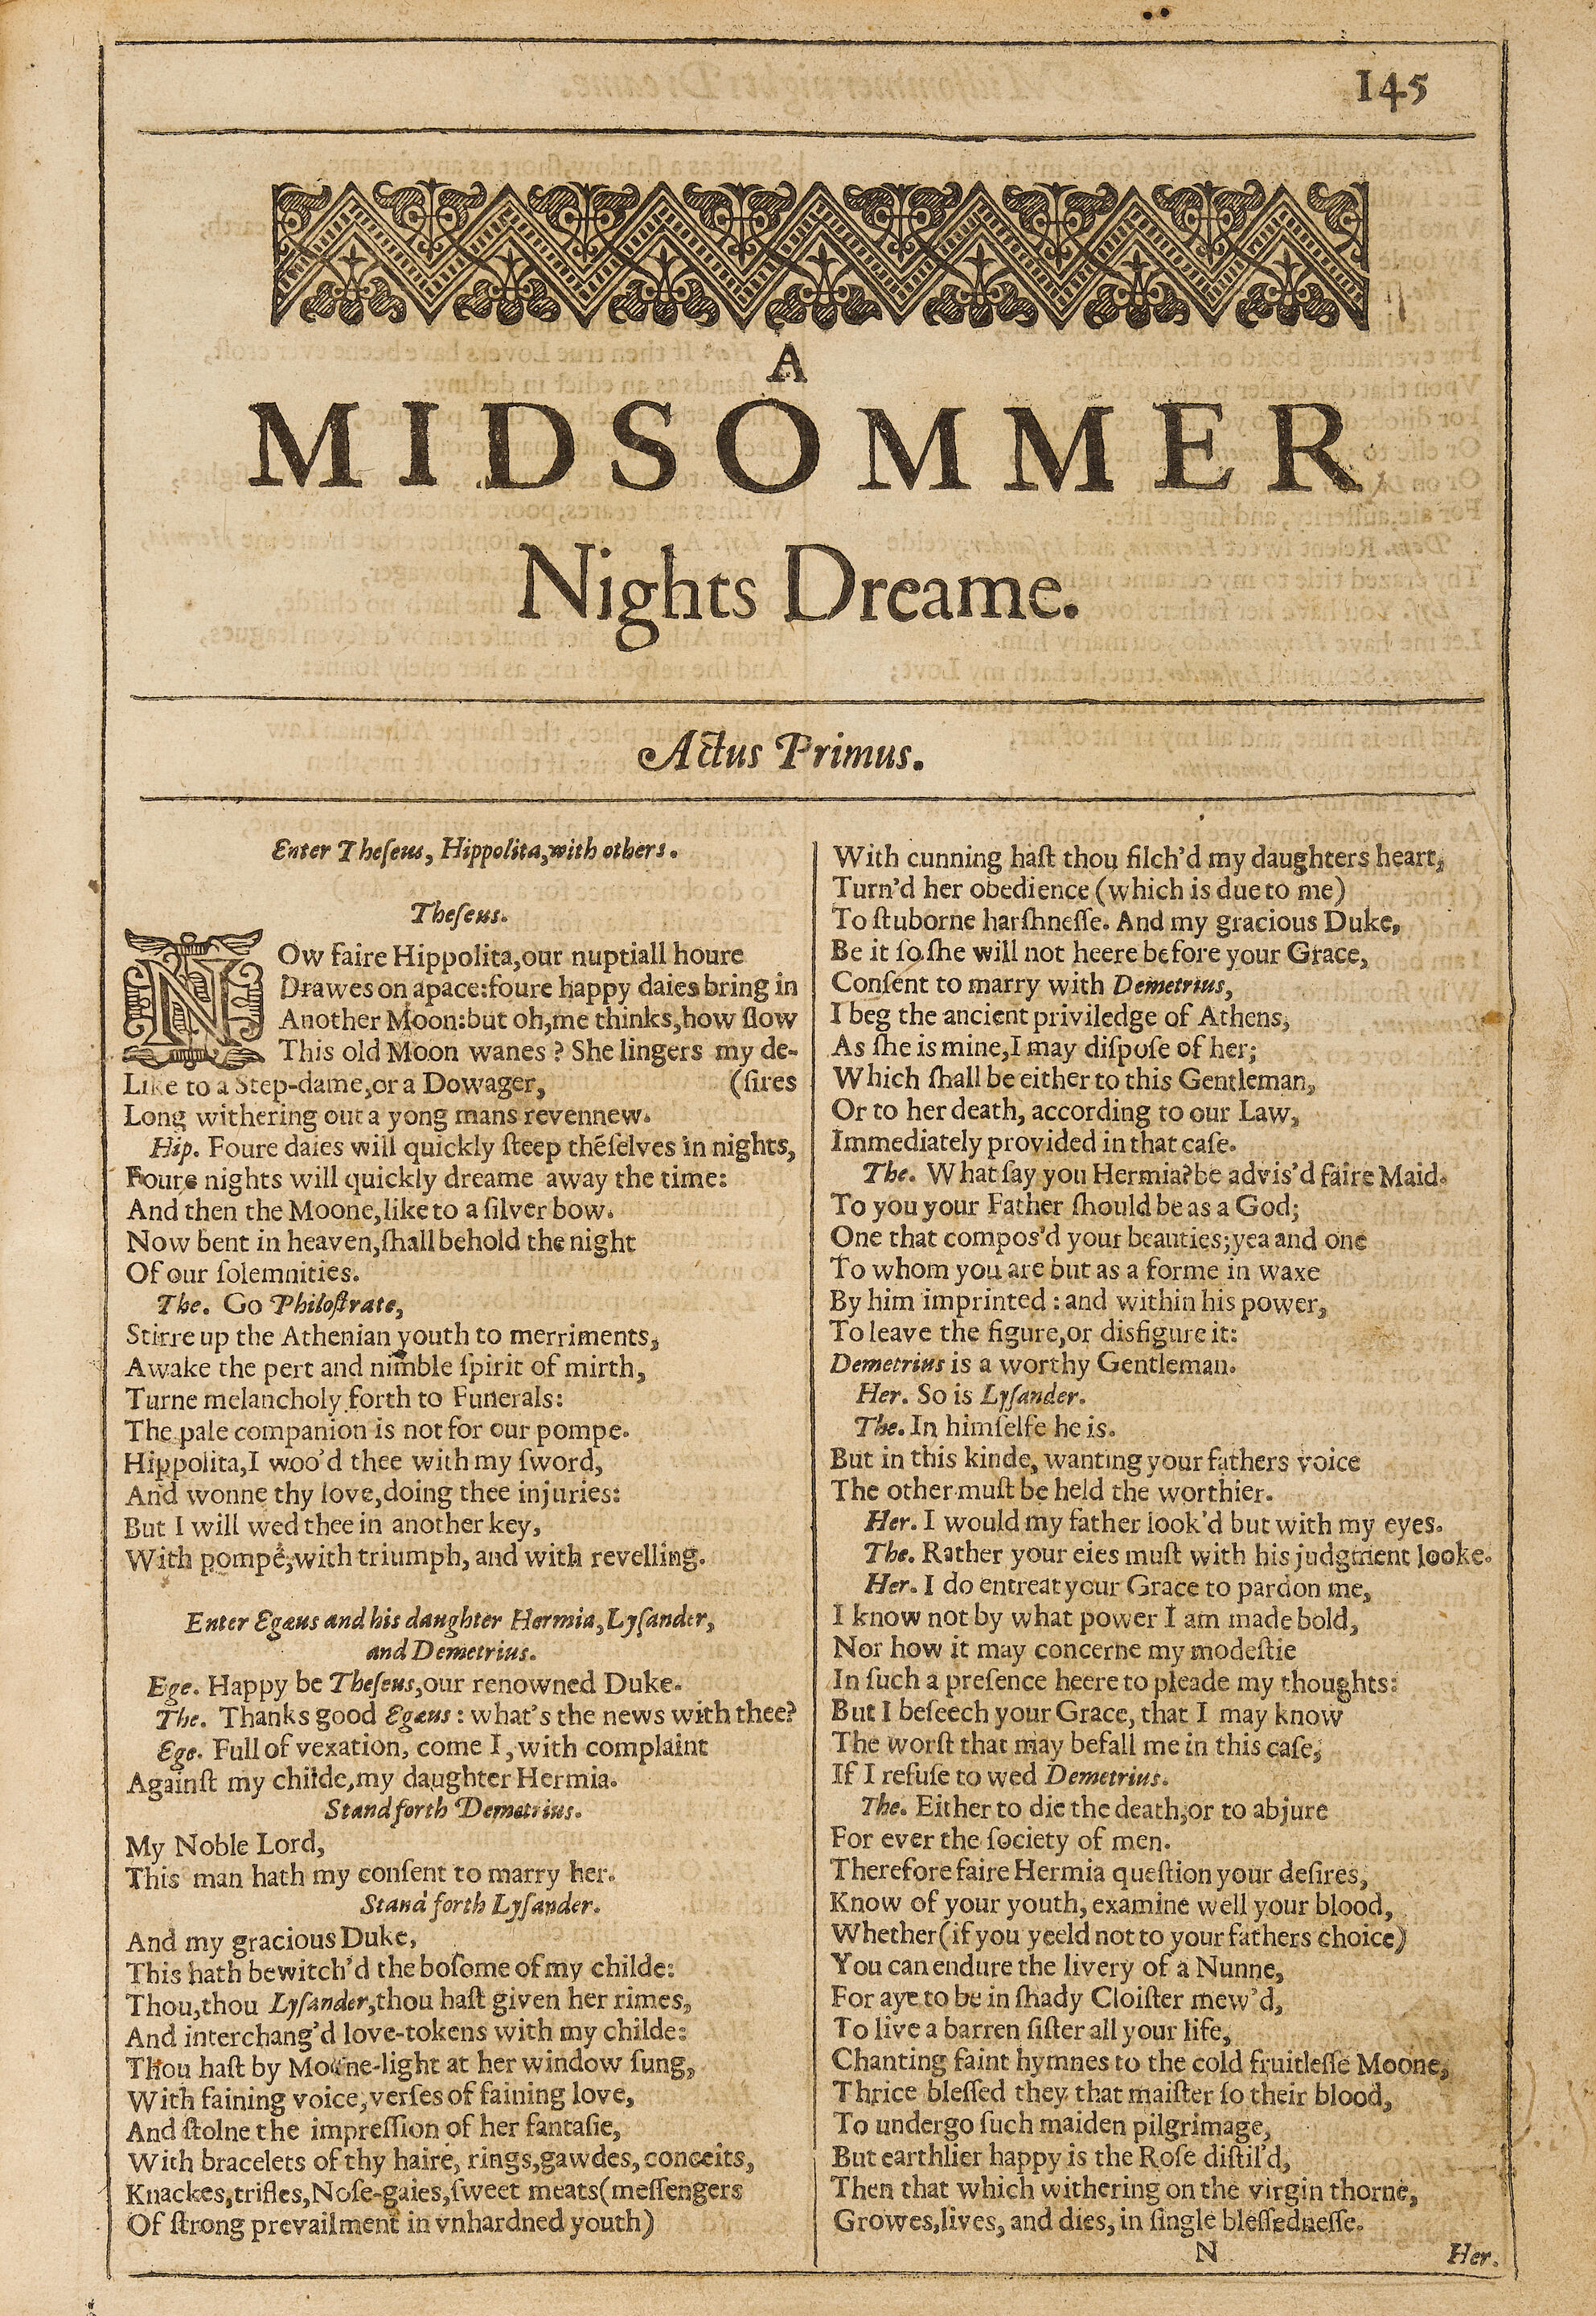 145
A
MIDSOMMER
Nights Dreame.
Actus Primus.
Enter Theſeus, Hippolita, with others.
Theſeus.
NOw faire Hippolita, our nuptiall houre
Drawes on apace: foure happy daies bring in
Another Moon: but oh, me thinks, how ſlow
This old Moon wanes? She lingers my de-
Like to a Step-dame, or a Dowager, (ſires
Long withering out a yong mans revennew.
Hip. Foure daies will quickly ſteep thēſelves in nights,
Foure nights will quickly dreame away the time:
And then the Moone, like to a ſilver bow.
Now bent in heaven, ſhall behold the night
Of our ſolemnities.
The. Go Philoſtrate,
Stirre up the Athenian youth to merriments,
Awake the pert and nimble ſpirit of mirth,
Turne melancholy forth to Funerals:
The pale companion is not for our pompe.
Hippolita, I woo'd thee with my ſword,
And wonne thy love, doing thee injuries:
But I will wed thee in another key,
With pompe, with triumph, and with revelling.
Enter Egæus and his daughter Hermia, Lyſander,
and Demetrius.
Ege. Happy be Theſeus, our renowned Duke.
The. Thanks good Egæus: what's the news with thee?
Ege. Full of vexation, come I, with complaint
Againſt my childe, my daughter Hermia.
Stand forth Demetrius.
My Noble Lord,
This man hath my conſent to marry her.
Stand forth Lyſander.
And my gracious Duke,
This hath bewitch'd the boſome of my childe:
Thou, thou Lyſander, thou haſt given her rimes,
And interchang'd love-tokens with my childe:
Thou haſt by Moone-light at her window ſung,
With faining voice, verſes of faining love,
And ſtolne the impreſſion of her fantaſie,
With bracelets of thy haire, rings, gawdes, conceits,
Knackes, trifles, Noſe-gaies, ſweet meats (meſſengers
Of ſtrong prevailment in vnhardned youth)
With cunning haſt thou filch'd my daughters heart,
Turn'd her obedience (which is due to me)
To ſtuborne harſhneſſe. And my gracious Duke,
Be it ſo ſhe will not heere before your Grace,
Conſent to marry with Demetrius,
I beg the ancient priviledge of Athens,
As ſhe is mine, I may diſpoſe of her;
Which ſhall be either to this Gentleman,
Or to her death, according to our Law,
Immediately provided in that caſe.
The. What ſay you Hermia? be advis'd faire Maid.
To you your Father ſhould be as a God;
One that compos'd your beauties; yea and one
To whom you are but as a forme in waxe
By him imprinted: and within his power,
To leave the figure, or disfigure it:
Demetrius is a worthy Gentleman.
Her. So is Lyſander.
The. In himſelfe he is.
But in this kinde, wanting your fathers voice
The other muſt be held the worthier.
Her. I would my father look'd but with my eyes.
The. Rather your eies muſt with his judgment looke.
Her. I do entreat your Grace to pardon me,
I know not by what power I am made bold,
Nor how it may concerne my modeſtie
In ſuch a preſence heere to pleade my thoughts:
But I beſeech your Grace, that I may know
The worſt that may befall me in this caſe,
If I refuſe to wed Demetrius.
The. Either to die the death, or to abjure
For ever the ſociety of men.
Therefore faire Hermia queſtion your deſires,
Know of your youth, examine well your blood,
Whether (if you yeeld not to your fathers choice)
You can endure the livery of a Nunne,
For aye to be in ſhady Cloiſter mew'd,
To live a barren ſiſter all your life,
Chanting faint hymnes to the cold fruitleſſe Moone,
Thrice bleſſed they that maiſter ſo their blood,
To undergo ſuch maiden pilgrimage,
But earthlier happy is the Roſe diſtil'd,
Then that which withering on the virgin thorne,
Growes, lives, and dies, in ſingle bleſſedneſſe.
N Her.